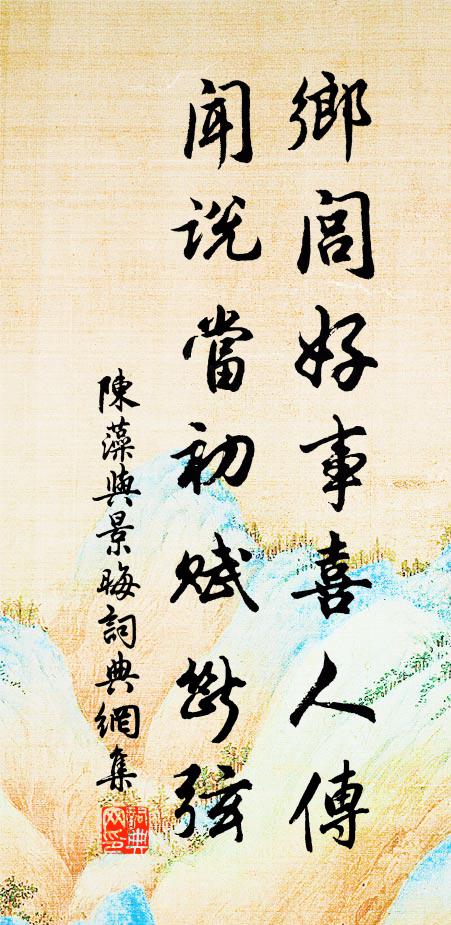 鄉閭好事喜人傳
聞說當初賦斷弦
陳藻與景晦詞典網集
詞典網印